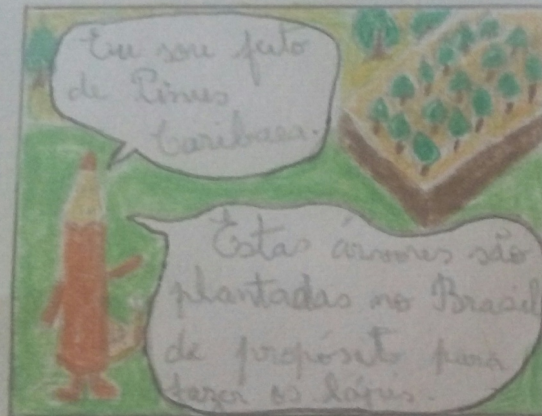 Eu sou feito
de Pinus
Caribaea.
Estas árvores são
plantadas no Brasil
de propósito para
fazer os lápis.